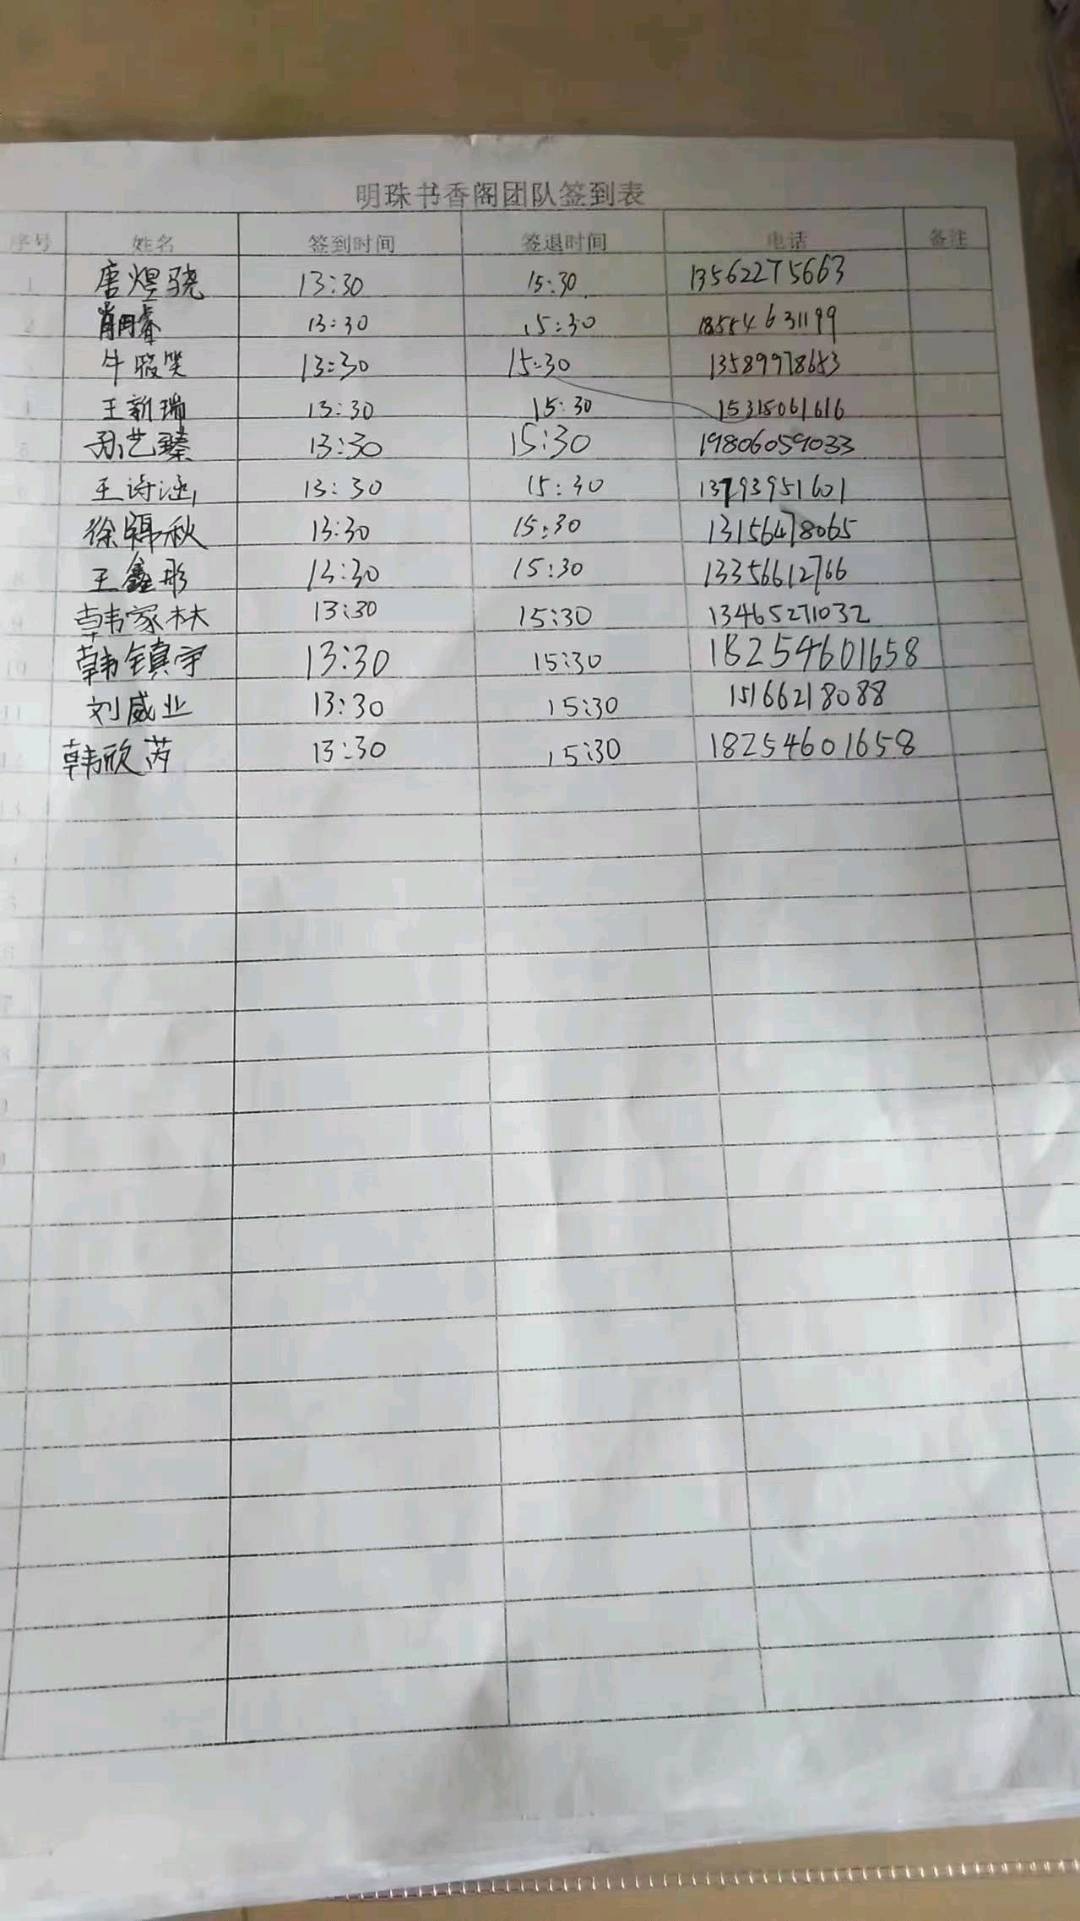 明珠书香阁团队签到表
序号 姓名 签到时间 签退时间 电话 备注
1 唐煜骁 13:30 15:30 13562275663
2 13:30 15:30 18554631199
牛骏笑 13:30 15:30 13589978653
王新瑞 13:30 15:30 15315061616
5 孙艺臻 13:30 15:30 19806059033
王诗涵 13:30 15:30 13793951601
徐锦秋 13:30 15:30 13156478065
8 王鑫彤 13:30 15:30 13356612766
9 韩家林 13:30 15:30 13465271032
10 韩镇宇 13:30 15:30 18254601658
11 刘威业 13:30 15:30 15166218088
12 韩欣芮 13:30 15:30 18254601658
13